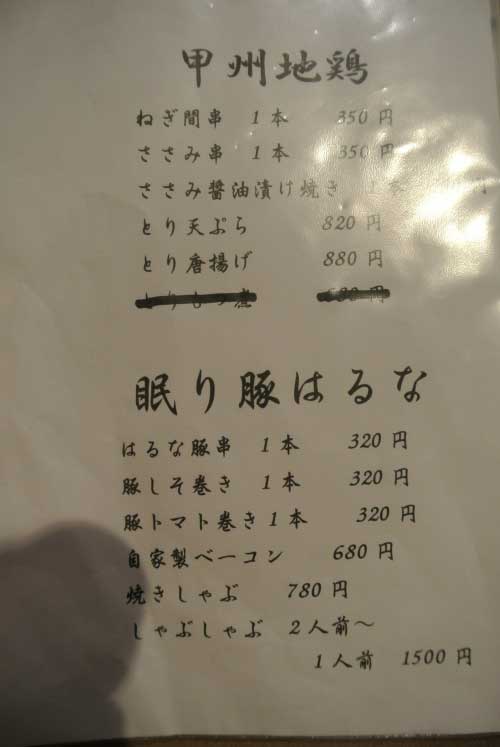 甲州地鶏
ねぎ間串 1本 350円
ささみ串 1本 350円
ささみ醤油漬け焼き 1本 円
とり天ぷら 820円
とり唐揚げ 880円
眠り豚はるな
はるな豚串 1本 320円
豚しそ巻き 1本 320円
豚トマト巻き1本 320円
自家製ベーコン 680円
焼きしゃぶ 780円
しゃぶしゃぶ 2人前～
1人前 1500円